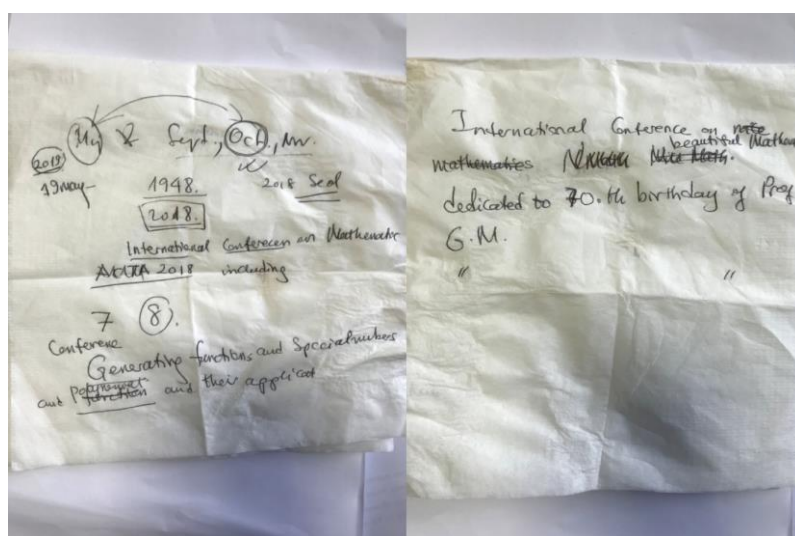 Sept., Oct., Nov.
2019
19 May
1948.
2018 Seol
2018.
International Conferecen on Mathematic
2018 including
7 8.
Conference
Generating functions and Specialnumbers
and and their applicat
International Conference on
beautiful Mathem
mathematics
dedicated to 70.th birthday of Prof
G.M.
" "